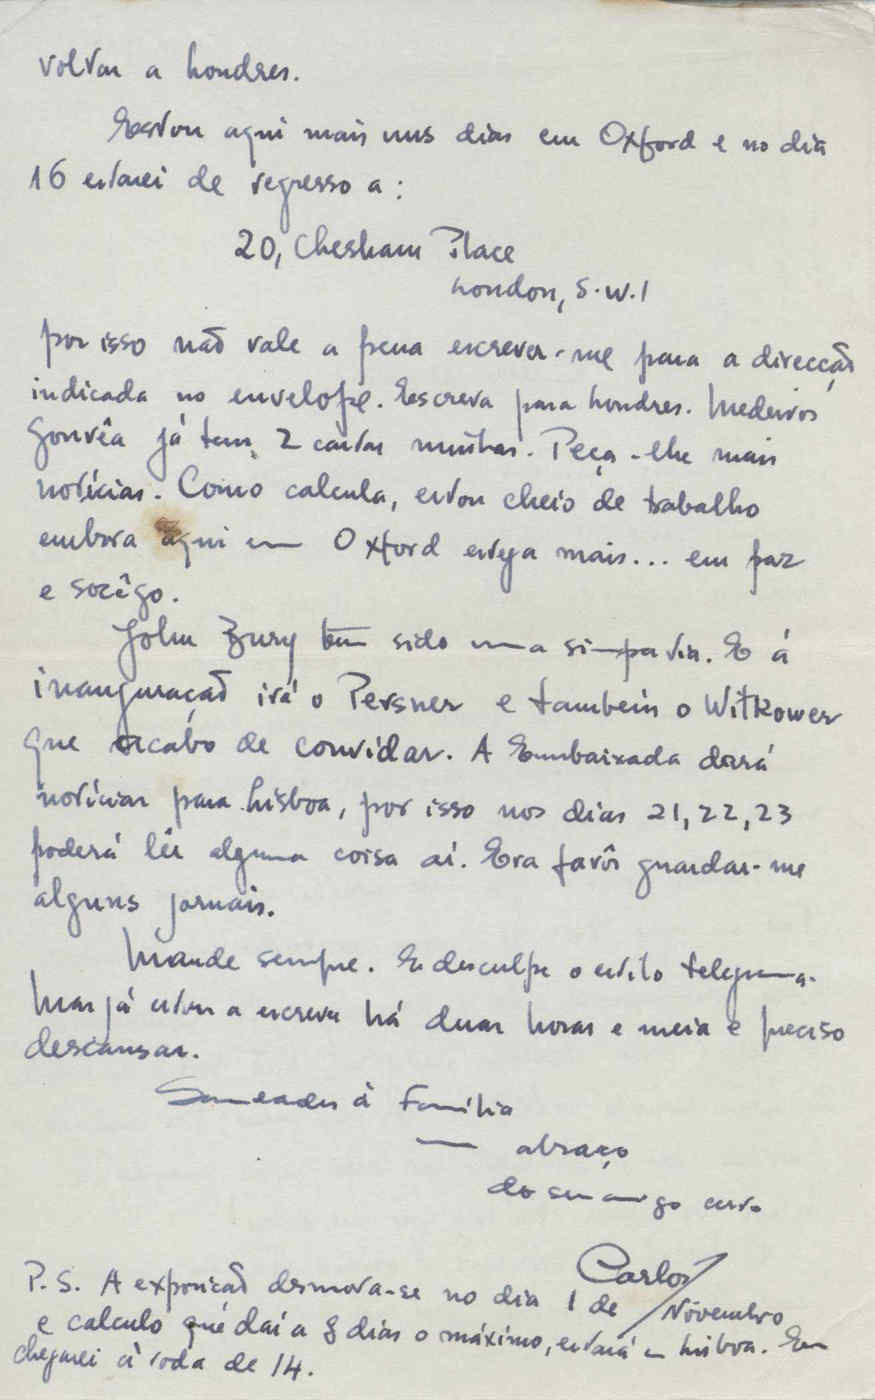 voltar a Londres.
Estou aqui mais uns dias em Oxford e no dia
16 estarei de regresso a:
20, Chesham Place
London, S.W.1
por isso não vale a pena escrever-me para a direcção
indicada no envelope. Escreva para Londres. Medeiros
Gouvêa já tem 2 cartas minhas. Peça-lhe mais
notícias. Como calcula, estou cheio de trabalho
embora aqui em Oxford esteja mais... em paz
e socêgo.
John Bury tem sido uma simpatia. E á
inauguração irá o Pevsner e também o Witkower
que acabo de convidar. A Embaixada dará
notícias para Lisboa, por isso nos dias 21, 22, 23
poderá lêr alguma coisa aí. Era favôr guardar-me
alguns jornais.
Mande sempre. E desculpe o estilo telegrama.
Mas já estou a escrever há duas horas e meia e preciso
descansar.
Saudades à Família
um abraço
do seu amigo certo
Carlos
P.S. A exposição desmonta-se no dia 1 de Novembro
e calculo que daí a 8 dias o máximo, estará em Lisboa. Eu
chegarei à roda de 14.